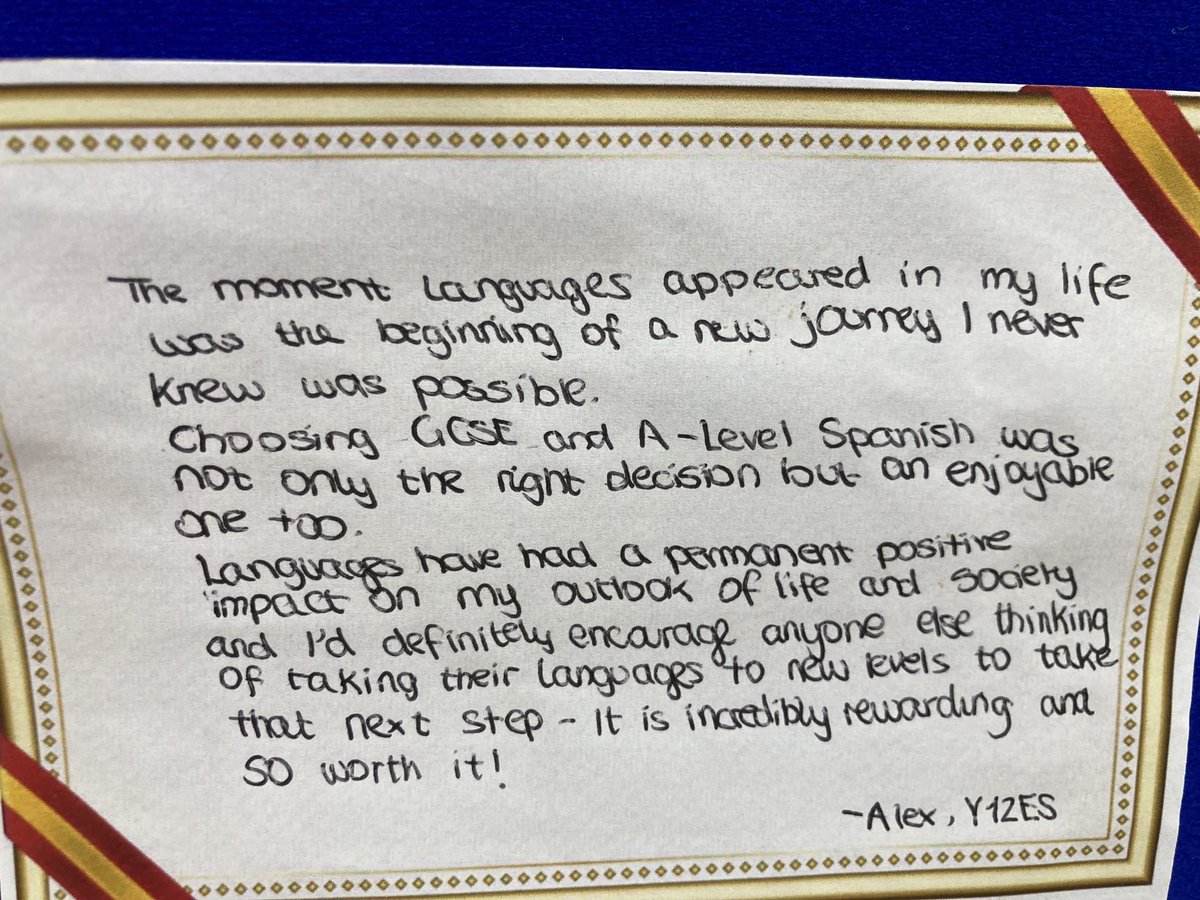 The moment languages appeared in my life
was the beginning of a new journey I never
knew was possible.
Choosing GCSE and A-Level Spanish was
not only the right decision but an enjoyable
one too.
Languages have had a permanent positive
impact on my outlook of life and society
and I'd definitely encourage anyone else thinking
of taking their languages to new levels to take
that next step - It is incredibly rewarding and
so worth it!
-Alex, Y12ES